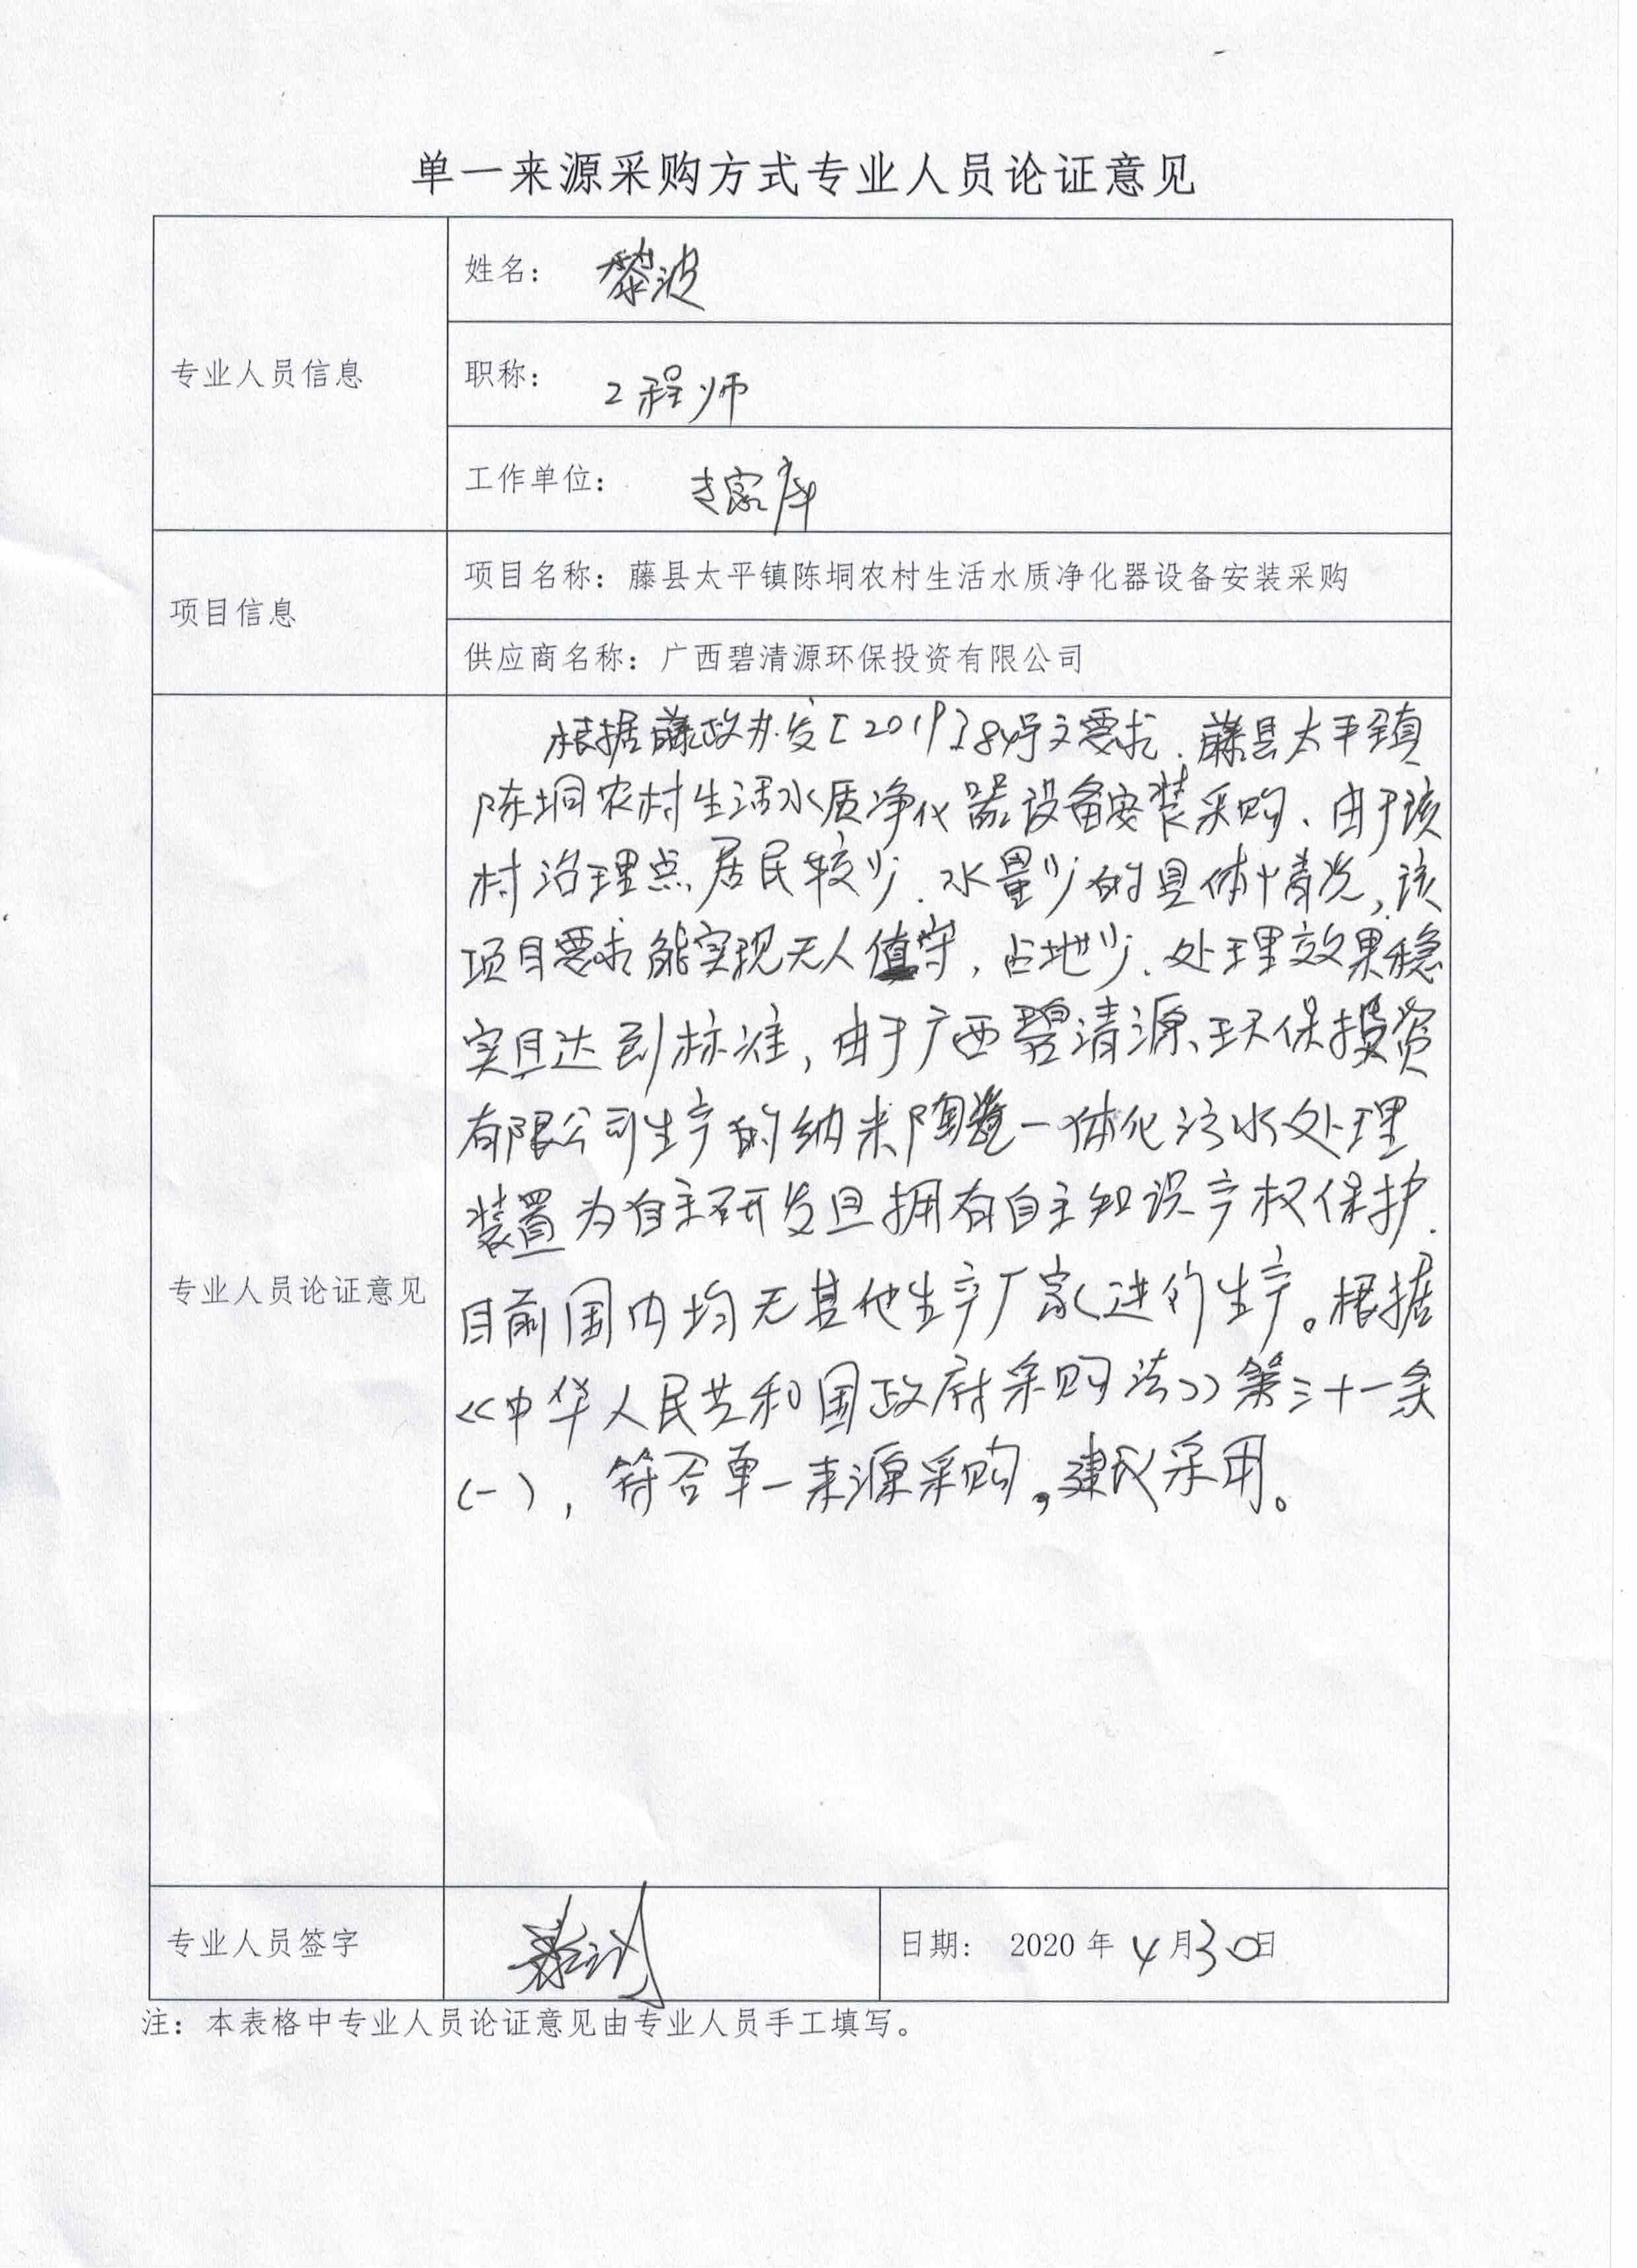 单一来源采购方式专业人员论证意见
专业人员信息
姓名： 黎波
职称： 工程师
工作单位： 专家库
项目信息
项目名称：藤县太平镇陈垌农村生活水质净化器设备安装采购
供应商名称：广西碧清源环保投资有限公司
专业人员论证意见
根据藤政办发［2019］84号文要求、藤县太平镇
陈垌农村生活水质净化器设备安装采购、由于该
村治理点居民较少、水量少的具体情况，该
项目要求能实现无人值守，占地少、处理效果稳
实且达到标准，由于广西碧清源环保投资
有限公司生产的纳米陶瓷一体化污水处理
装置为自主研发且拥有自主知识产权保护.
目前国内均无其他生产厂家进行生产。根据
《中华人民共和国政府采购法》第三十一条
（一），符合单一来源采购，建议采用。
专业人员签字
日期： 2020年4月30日
注：本表格中专业人员论证意见由专业人员手工填写。